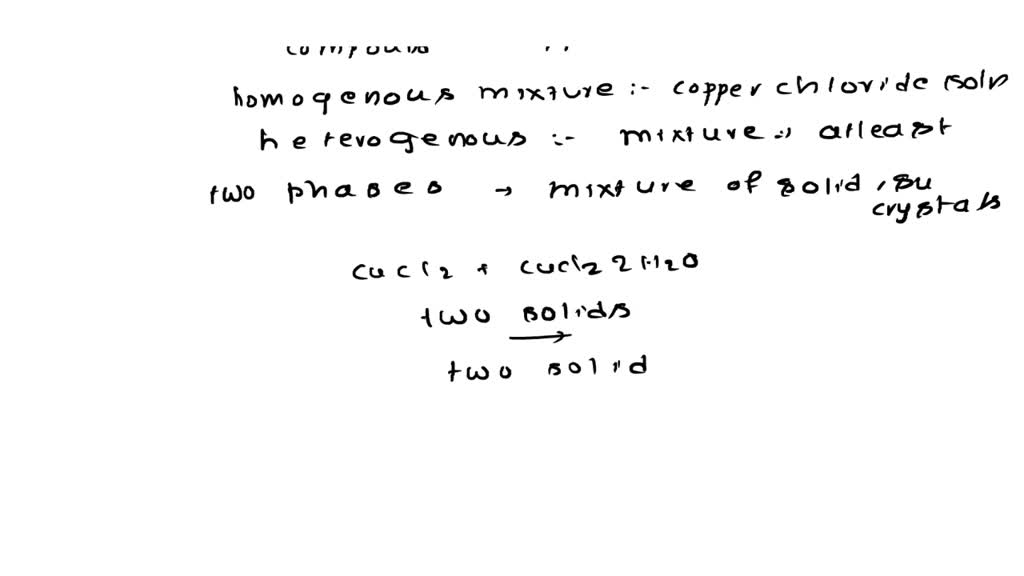 homogenous mixture :- copper chloride soln
heterogenous :- mixture :, atleast
two phases → mixture of solid, su
crystals
CuCl2 + CuCl2 2H2O
two solids
two solid